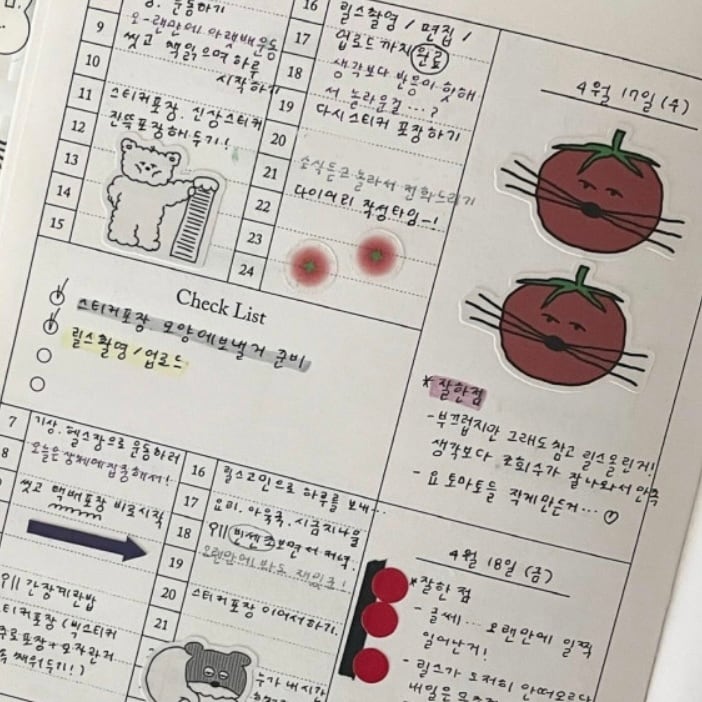 운동하기
9
오랜만에 아랫배운동
10
씻고 책읽으며 하루
시작하기
11
스티커포장. 신상스티커
12
진뜩포장해두기!
13
14
15
16
릴스촬영 / 편집 /
17
업로드까지 완료
18
생각보다 반응이 핫해
19
서 놀라운걸...?
다시 스티커 포장하기
20
21
소식듣고 놀라서 전화드리기
22
다이어리 작성타임-!
23
24
4월 17일 (수)
Check List
스티커포장. 모양에보낼거 준비
릴스촬영 / 업로드
*잘한점
- 부끄럽지만 그래도 참고 릴스올린거!
생각보다 조회수가 잘나와서 만족
- 요 토마토들 작게만든거...
7
기상. 헬스장으로 운동하러
8
오늘은 상체에집중해서!
씻고 택배포장 바로시작
간장계란밥
스티커포장 (빅스티커
포장+모자란거
채워두기!)
16
릴스고민으로 하루를 보내..
17
요리. 아욱국. 시금치나물
18
빈센조보면서 저녁.
19
오랜만에 봐도 재밌군!
20
스티커포장 이어서하기.
21
누가 내 시간
4월 18일 (금)
*잘한 점
- 글쎄... 오랜만에 일찍
일어난거!
- 릴스가 도저히 안떠오른다
내일은